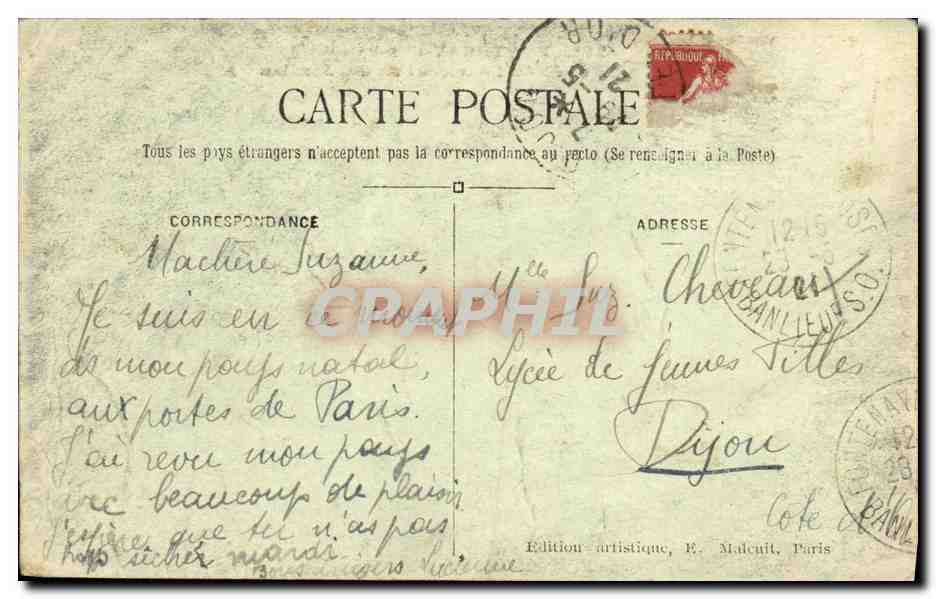 CARTE POSTALE
Tous les pays étrangers n'acceptent pas la correspondance au recto (Se renseigner à la Poste)
RÉPUBLIQUE
D'OR
21
5
CORRESPONDANCE
Machère Suzanne,
Je suis en ce moment
ds mon pays natal,
aux portes de Paris.
J'ai revu mon pays
avec beaucoup de plaisir
j'espère que tu n'as pas
trop sécher mardi
Bons baisers Lucienne
ADRESSE
Mlle Suz. Cheveau
Lycée de Jeunes Filles
Dijon
Cote d'Or
12-15
21
BANLIEUE S.O.
FONTENAY
Edition artistique, E. Malcuit, Paris
CPAPHIL